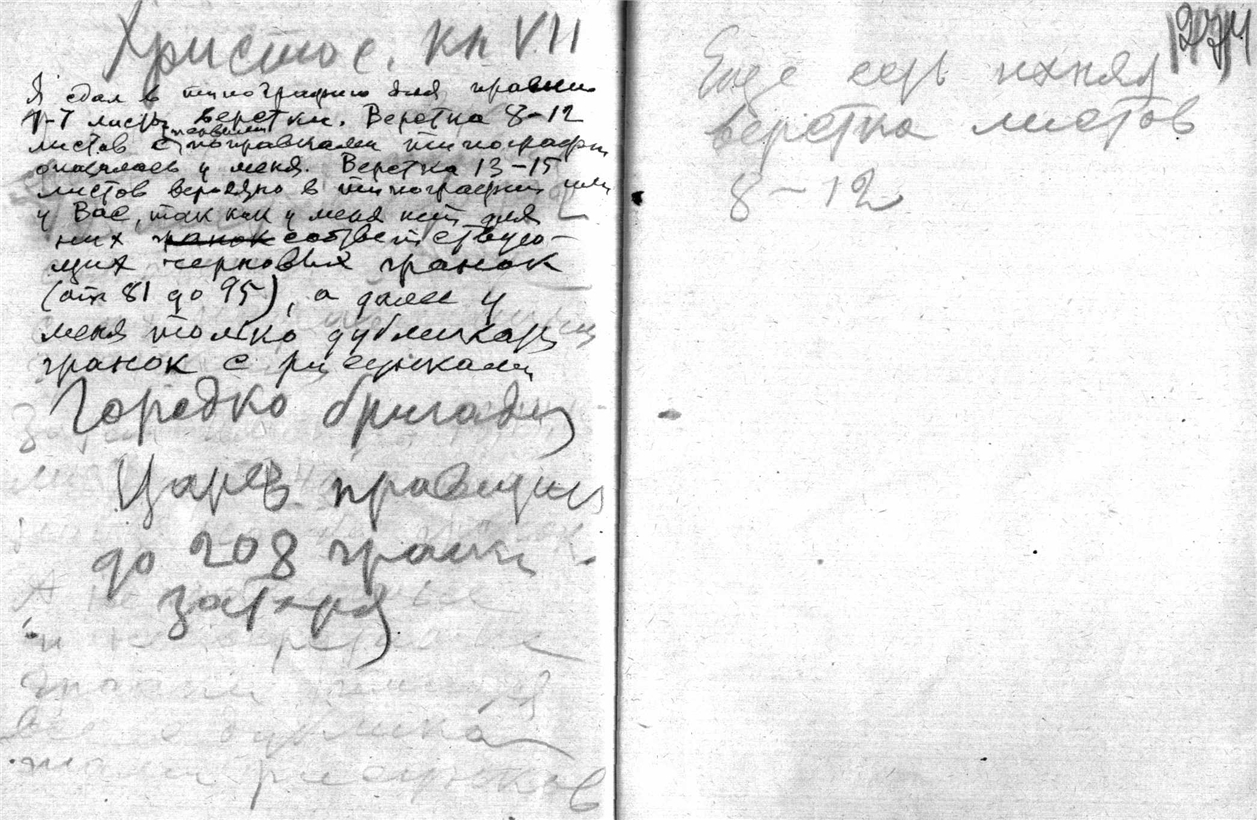 Христос. кн VII
Я сдал в типографию для правки
1-7 листы верстки. Верстка 8-12
листов с первыми поправками типографии
оказалась у меня. Верстка 13-15
листов вероятно в типографии или
у Вас, так как у меня нет для
них гранок соответствую-
щих черновых гранок
(от 81 до 95), а далее у
меня только дубликаты
гранок с рисунками
Городко бригадир
Царев правщик
до 208 гранки
затеря
и не
гранки
все дублика
тами рисунков
1274
Еще есть ихняя
верстка листов
8-12